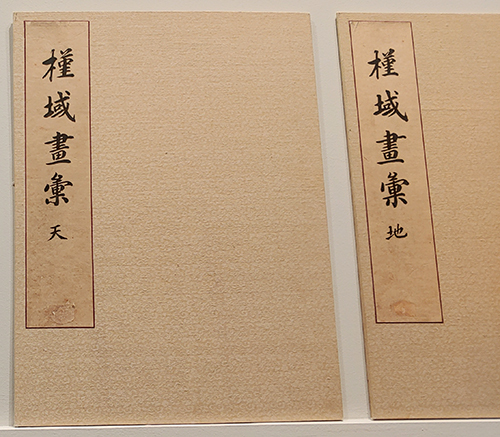 槿域畫彙 天
槿域畫彙 地